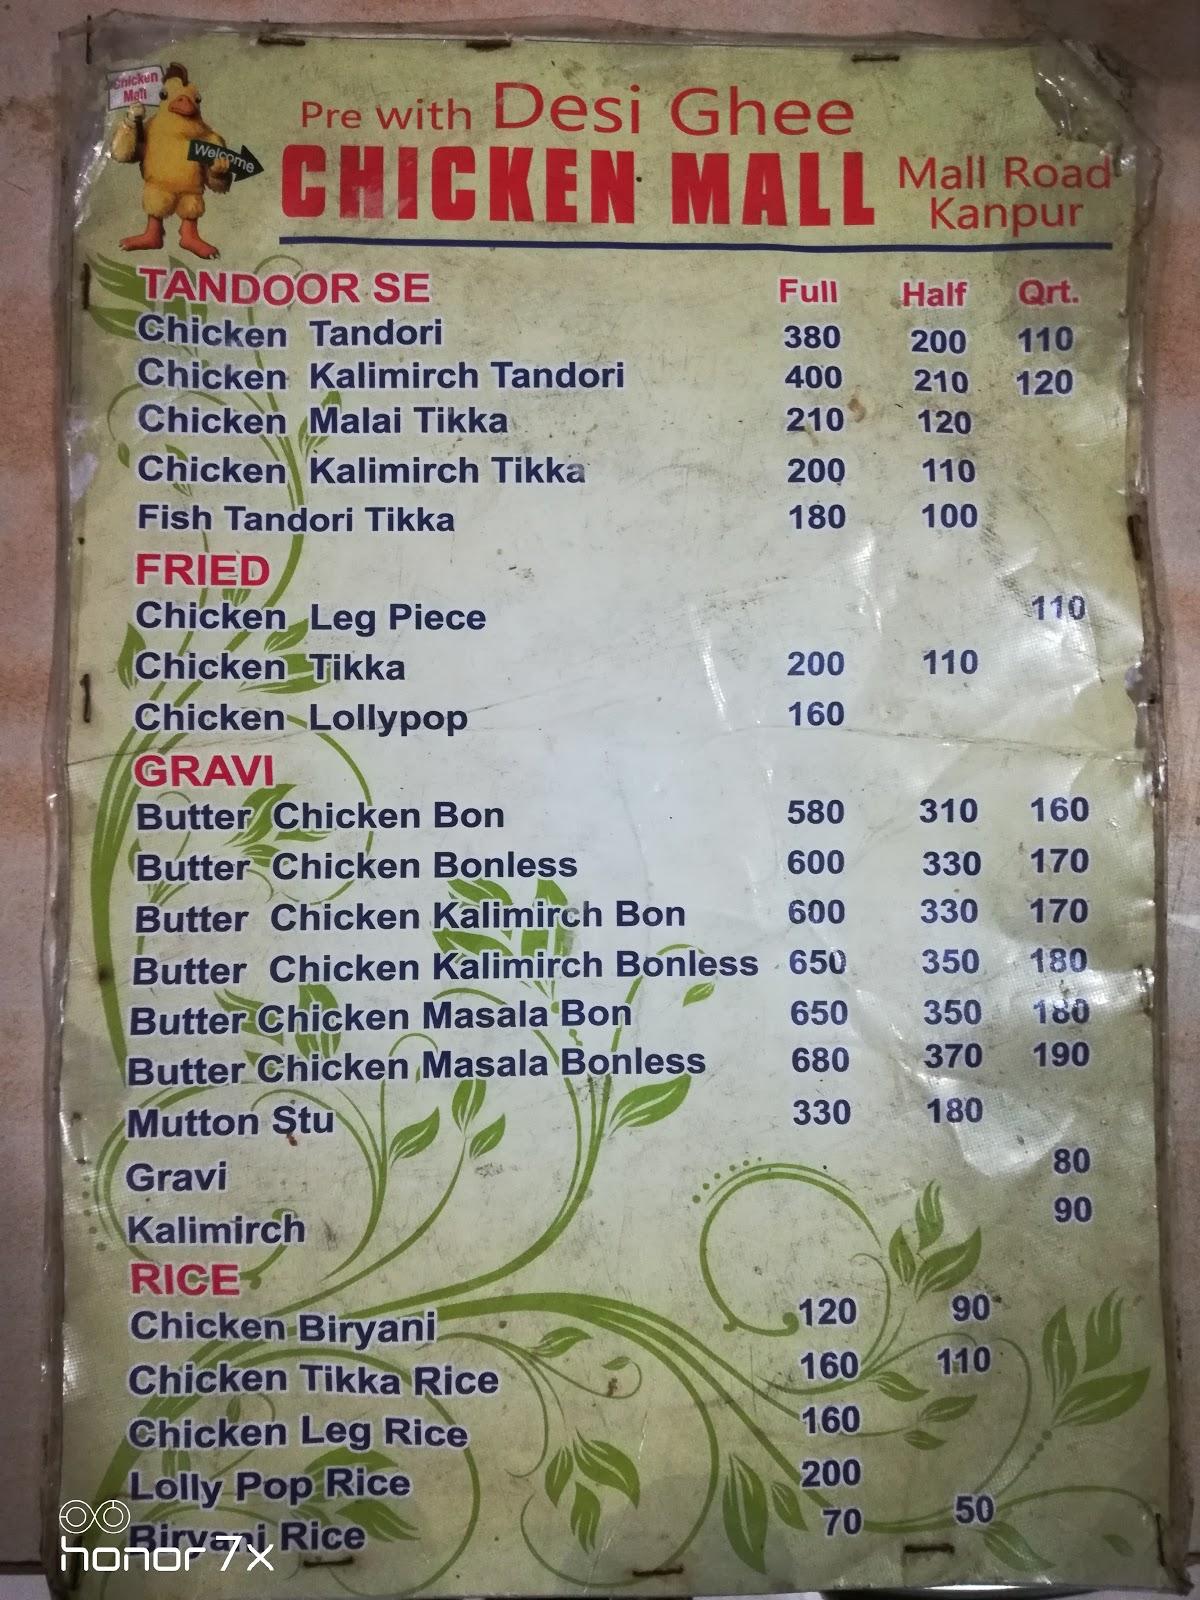 Chicken
Mall
Welcome
Pre with Desi Ghee
CHICKEN MALL Mall Road
Kanpur
TANDOOR SE Full Half Qrt.
Chicken Tandori 380 200 110
Chicken Kalimirch Tandori 400 210 120
Chicken Malai Tikka 210 120
Chicken Kalimirch Tikka 200 110
Fish Tandori Tikka 180 100
FRIED
Chicken Leg Piece 110
Chicken Tikka 200 110
Chicken Lollypop 160
GRAVI
Butter Chicken Bon 580 310 160
Butter Chicken Bonless 600 330 170
Butter Chicken Kalimirch Bon 600 330 170
Butter Chicken Kalimirch Bonless 650 350 180
Butter Chicken Masala Bon 650 350 180
Butter Chicken Masala Bonless 680 370 190
Mutton Stu 330 180
Gravi 80
Kalimirch 90
RICE
Chicken Biryani 120 90
Chicken Tikka Rice 160 110
Chicken Leg Rice 160
Lolly Pop Rice 200
Biryani Rice 70 50
honor 7x